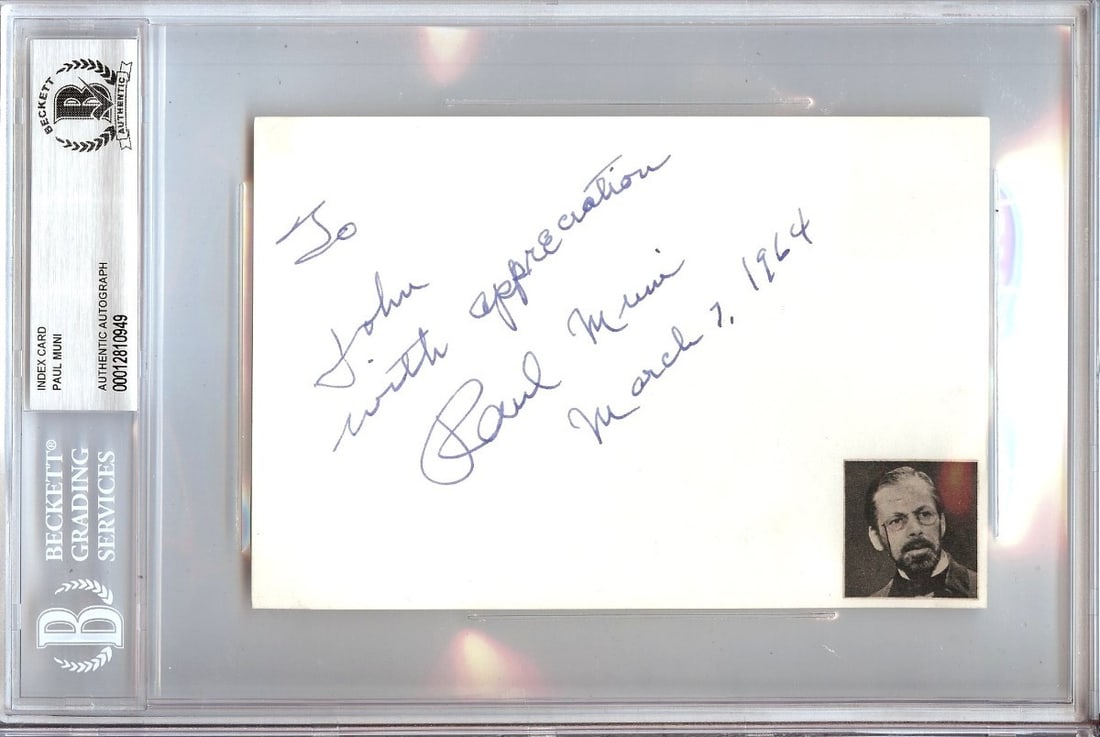 BECKETT
B
AUTHENTIC
INDEX CARD
PAUL MUNI
AUTHENTIC AUTOGRAPH
00012810949
BECKETT®
GRADING
SERVICES
B
To
John
with appreciation
Paul Muni
March 7, 1964